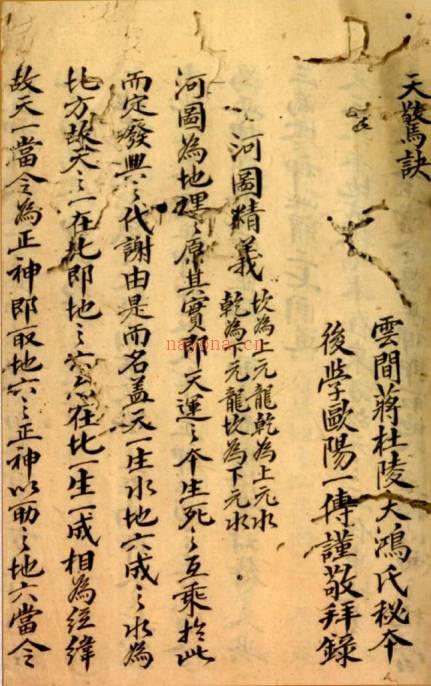 天驚訣
雲間蔣杜陵大鴻氏秘夲
後學歐陽一傳謹敬拜錄
河圖精義
坎為上元龍乾為上元水
乾為下元龍坎為下元水
河圖為地理之原其實即天運之夲生死之互乘於此
而定癈興之代謝由是而名盖天一生水地六成之水為
北方故天之一在北即地之六亦在北一生一成相為經緯
故天一當令為正神即取地六之正神以助之地六當令
nayona.cn